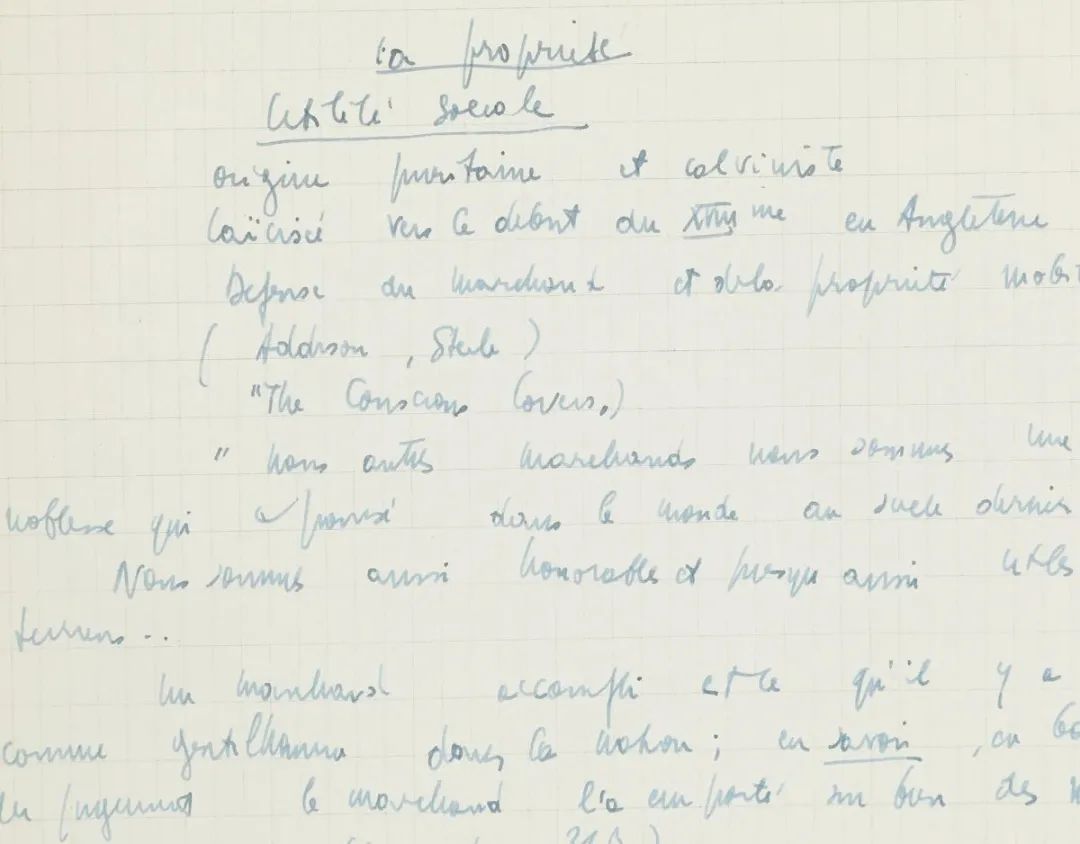 La propriété
Utilité sociale
origine puritaine et calviniste
laïcisé vers le début du XVIII me en Angleterre
Défense du marchand et de la propriété mobi
( Addison, Steele )
"The Conscious Lovers,)
" nous autres marchands nous sommes une
noblesse qui a poussé dans le monde au siècle dernier
Nous sommes aussi honorables et presque aussi utiles
terriens..
un marchand accompli est ce qu'il y a
comme gentilhomme dans la nation ; en savoir, en
jugement le marchand l'a emporté sur bien des